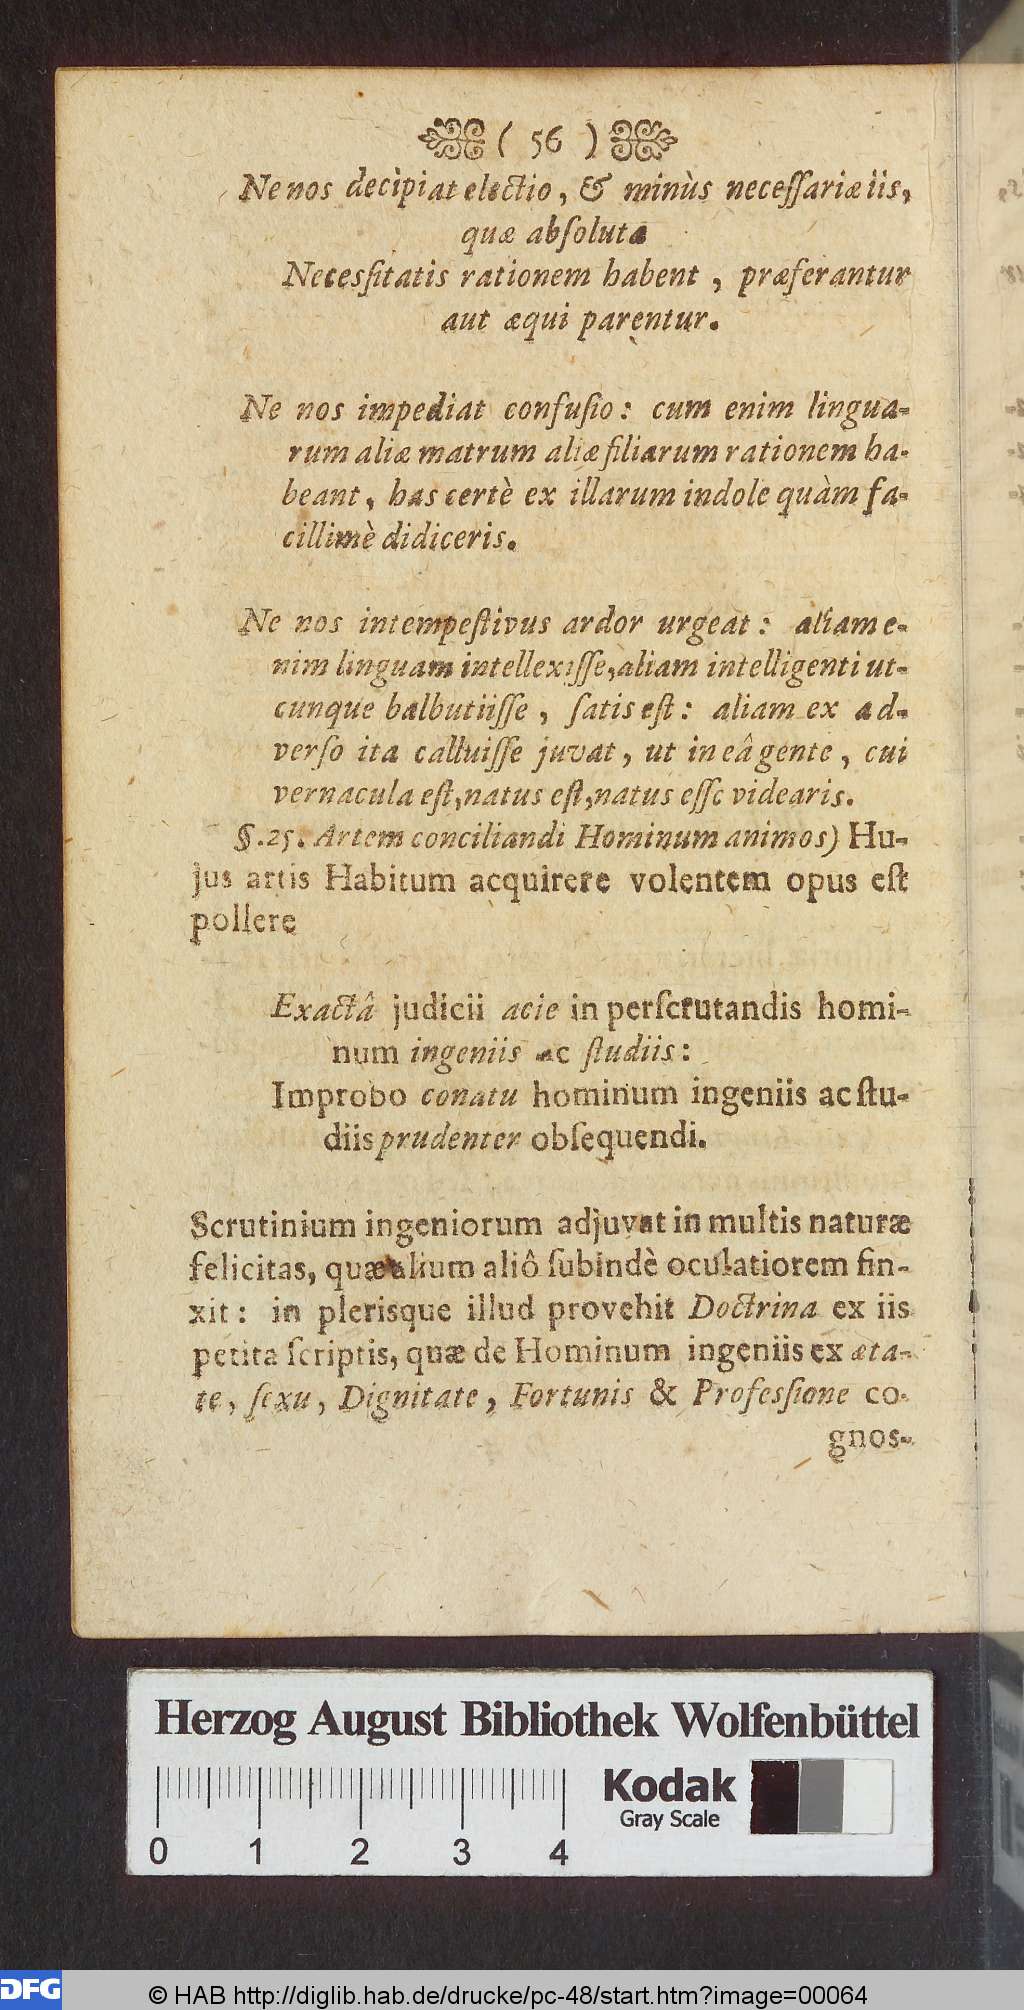 ( 56 )
Ne nos decìpiat electio, & minùs necessariæ iis,
quæ absoluta
Necessitatis rationem habent, præferantur
aut æqui parentur.
Ne nos impediat confusio: cum enim lingua-
rum aliæ matrum aliæ filiarum rationem ha-
beant, has certè ex illarum indole quàm fa-
cillimè didiceris.
Ne nos intempestivus ardor urgeat: aliam e-
nim linguam intellexisse, aliam intelligenti ut-
cunque balbutiisse, satis est: aliam ex ad-
verso ita calluisse juvat, ut in eâ gente, cui
vernacula est, natus est, natus esse videaris.
§. 25. Artem conciliandi Hominum animos) Hu-
jus artis Habitum acquirere volentem opus est
pollere
Exactâ judicii acie in perscrutandis homi-
num ingeniis ac studiis:
Improbo conatu hominum ingeniis ac stu-
diis prudenter obsequendi.
Scrutinium ingeniorum adjuvat in multis naturæ
felicitas, quæ alium aliô subindè oculatiorem fin-
xit: in plerisque illud provehit Doctrina ex iis
petita scriptis, quæ de Hominum ingeniis ex æta-
te, sexu, Dignitate, Fortunis & Professione co-
gnos-
Herzog August Bibliothek Wolfenbüttel
Kodak
Gray Scale
0 1 2 3 4
DFG
© HAB http://diglib.hab.de/drucke/pc-48/start.htm?image=00064